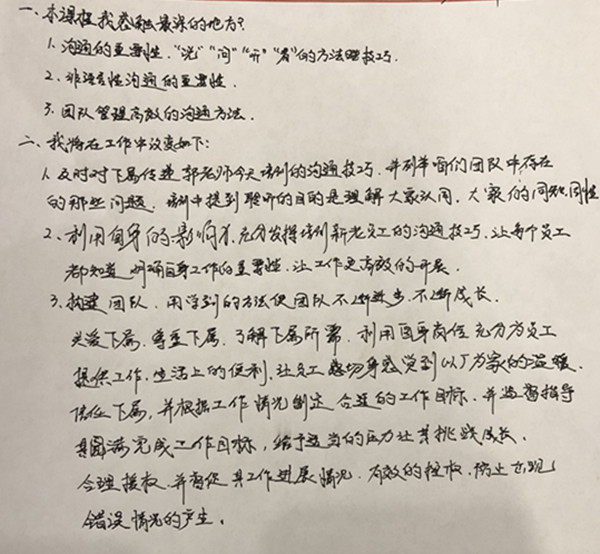 一、本课程我感触最深的地方?
1. 沟通的重要性."说""问""听""看"的方法跟技巧.
2. 非语言性沟通的重要性.
3. 团队管理高效的沟通方法.
二、我将在工作中改变如下:
1. 及时对下属传递郭老师今天培训的沟通技巧.并列举咱们团队中存在
的那些问题.培训中提到聆听的目的是理解大家认同,大家的同知同性
2. 利用自身的影响力.充分发挥培训新老员工的沟通技巧.让每个员工
都知道明确自身工作的重要性.让工作更高效的开展.
3. 构建团队.用学到的方法使团队不断进步.不断成长.
关爱下属.尊重下属.了解下属所需.利用自身岗位充分为员工
提供工作,生活上的便利,让员工感切身感觉到以厂为家的温暖.
信任下属,并根据工作情况制定合适的工作目标.并监督指导
其圆满完成工作目标,给于适当的压力让其挑战成长.
合理授权.并督促其工作进展情况.有效的控权.防止出现
错误情况的产生.